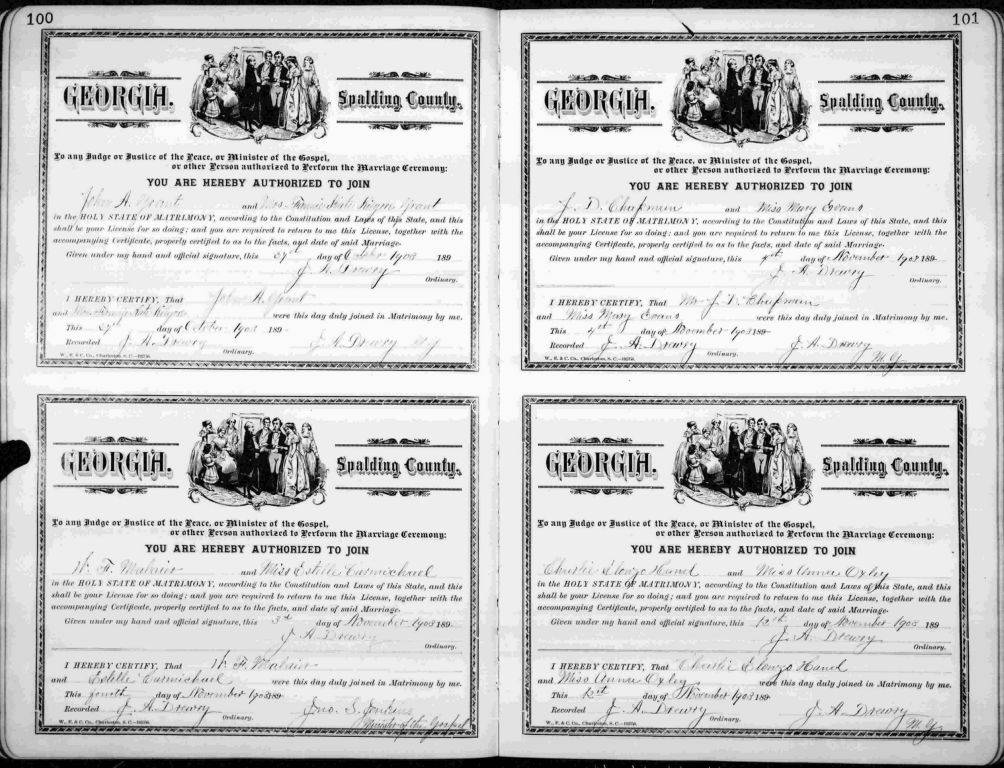 100
GEORGIA.
Spalding County.
To any Judge or Justice of the Peace, or Minister of the Gospel,
or other Person authorized to Perform the Marriage Ceremony:
YOU ARE HEREBY AUTHORIZED TO JOIN
John A. Grant and Miss Kate Grant
in the HOLY STATE OF MATRIMONY, according to the Constitution and Laws of this State, and this
shall be your License for so doing; and you are required to return to me this License, together with the
accompanying Certificate, properly certified as to the facts, and date of said Marriage.
Given under my hand and official signature, this 27th day of October 1903 189
J. A. Drewry
Ordinary.
I HEREBY CERTIFY, That John A. Grant
and Kate were this day duly joined in Matrimony by me.
This 27th day of October 1903 189
Recorded J. A. Drewry J. A. Drewry
Ordinary.
W., E. & C. Co., Charleston, S. C.
GEORGIA.
Spalding County.
To any Judge or Justice of the Peace, or Minister of the Gospel,
or other Person authorized to Perform the Marriage Ceremony:
YOU ARE HEREBY AUTHORIZED TO JOIN
and Miss Estelle Carmichael
in the HOLY STATE OF MATRIMONY, according to the Constitution and Laws of this State, and this
shall be your License for so doing; and you are required to return to me this License, together with the
accompanying Certificate, properly certified as to the facts, and date of said Marriage.
Given under my hand and official signature, this 3rd day of November 1903 189
J. A. Drewry
Ordinary.
I HEREBY CERTIFY, That
and Estelle Carmichael were this day duly joined in Matrimony by me.
This fourth day of November 1903 189
Recorded J. A. Drewry Jno. S. Jenkins
Ordinary. Minister of the Gospel
W., E. & C. Co., Charleston, S. C.
101
GEORGIA.
Spalding County.
To any Judge or Justice of the Peace, or Minister of the Gospel,
or other Person authorized to Perform the Marriage Ceremony:
YOU ARE HEREBY AUTHORIZED TO JOIN
J. D. Chapman and Miss Mary Evans
in the HOLY STATE OF MATRIMONY, according to the Constitution and Laws of this State, and this
shall be your License for so doing; and you are required to return to me this License, together with the
accompanying Certificate, properly certified as to the facts, and date of said Marriage.
Given under my hand and official signature, this day of November 1903 189
J. A. Drewry
Ordinary.
I HEREBY CERTIFY, That Mr J. D. Chapman
and Miss Mary Evans were this day duly joined in Matrimony by me.
This day of November 1903 189
Recorded J. A. Drewry J. A. Drewry
Ordinary. M. G.
W., E. & C. Co., Charleston, S. C.
GEORGIA.
Spalding County.
To any Judge or Justice of the Peace, or Minister of the Gospel,
or other Person authorized to Perform the Marriage Ceremony:
YOU ARE HEREBY AUTHORIZED TO JOIN
Charlie Elonzo Hand and Miss Anna Oxley
in the HOLY STATE OF MATRIMONY, according to the Constitution and Laws of this State, and this
shall be your License for so doing; and you are required to return to me this License, together with the
accompanying Certificate, properly certified as to the facts, and date of said Marriage.
Given under my hand and official signature, this 12th day of November 1903 189
J. A. Drewry
Ordinary.
I HEREBY CERTIFY, That Charlie Elonzo Hand
and Miss Anna Oxley were this day duly joined in Matrimony by me.
This day of November 1903 189
Recorded J. A. Drewry J. A. Drewry
Ordinary. M. G.
W., E. & C. Co., Charleston, S. C.